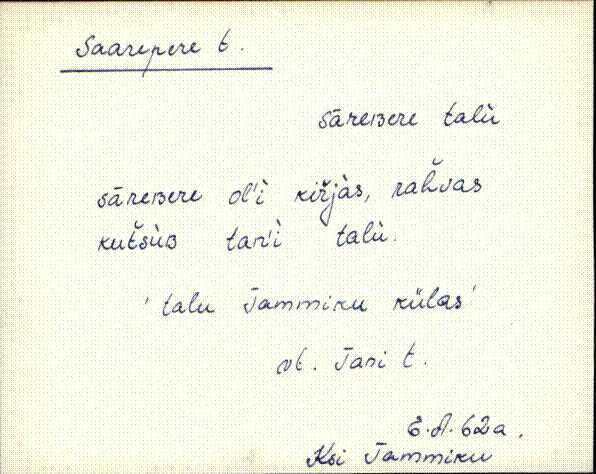 Saarepere t.
sāreʙere talù
sāreʙere ol'ì kiřjàs, rahvas
kutšùʙ tan'ì talù.
'talu Tammiku külas'
vt. Tani t.
E.A. 62a.
Ksi Tammiku